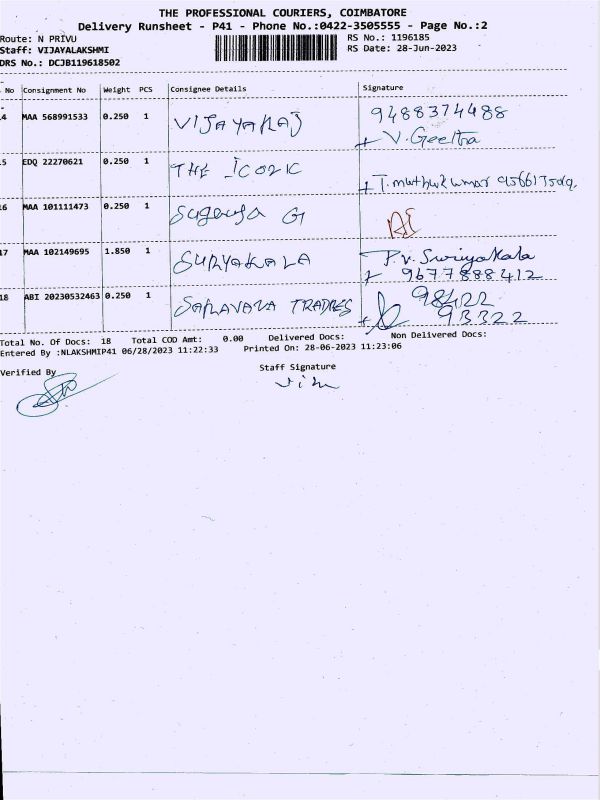 THE PROFESSIONAL COURIERS, COIMBATORE
Delivery Runsheet - P41 - Phone No.:0422-3505555 - Page No.:2
Route: N PRIVU
RS No.: 1196185
Staff: VIJAYALAKSHMI
RS Date: 28-Jun-2023
DRS No.: DCJB119618502
No Consignment No Weight PCS Consignee Details Signature
4 MAA 568991533 0.250 1 VIJAYARAJ 9488374488
V. Geetha
5 EDQ 22270621 0.250 1 THE ICONIC
T. muthukumar
6 MAA 101111473 0.250 1 G
17 MAA 102149695 1.850 1 SURYAKALA P.V. Suriyakala
9677888412
18 ABI 20230532463 0.250 1 SARAVANA TRADRES 98422
93322
Total No. Of Docs: 18 Total COD Amt: 0.00 Delivered Docs: Non Delivered Docs:
Entered By :NLAKSHMIP41 06/28/2023 11:22:33 Printed On: 28-06-2023 11:23:06
Verified By
Staff Signature